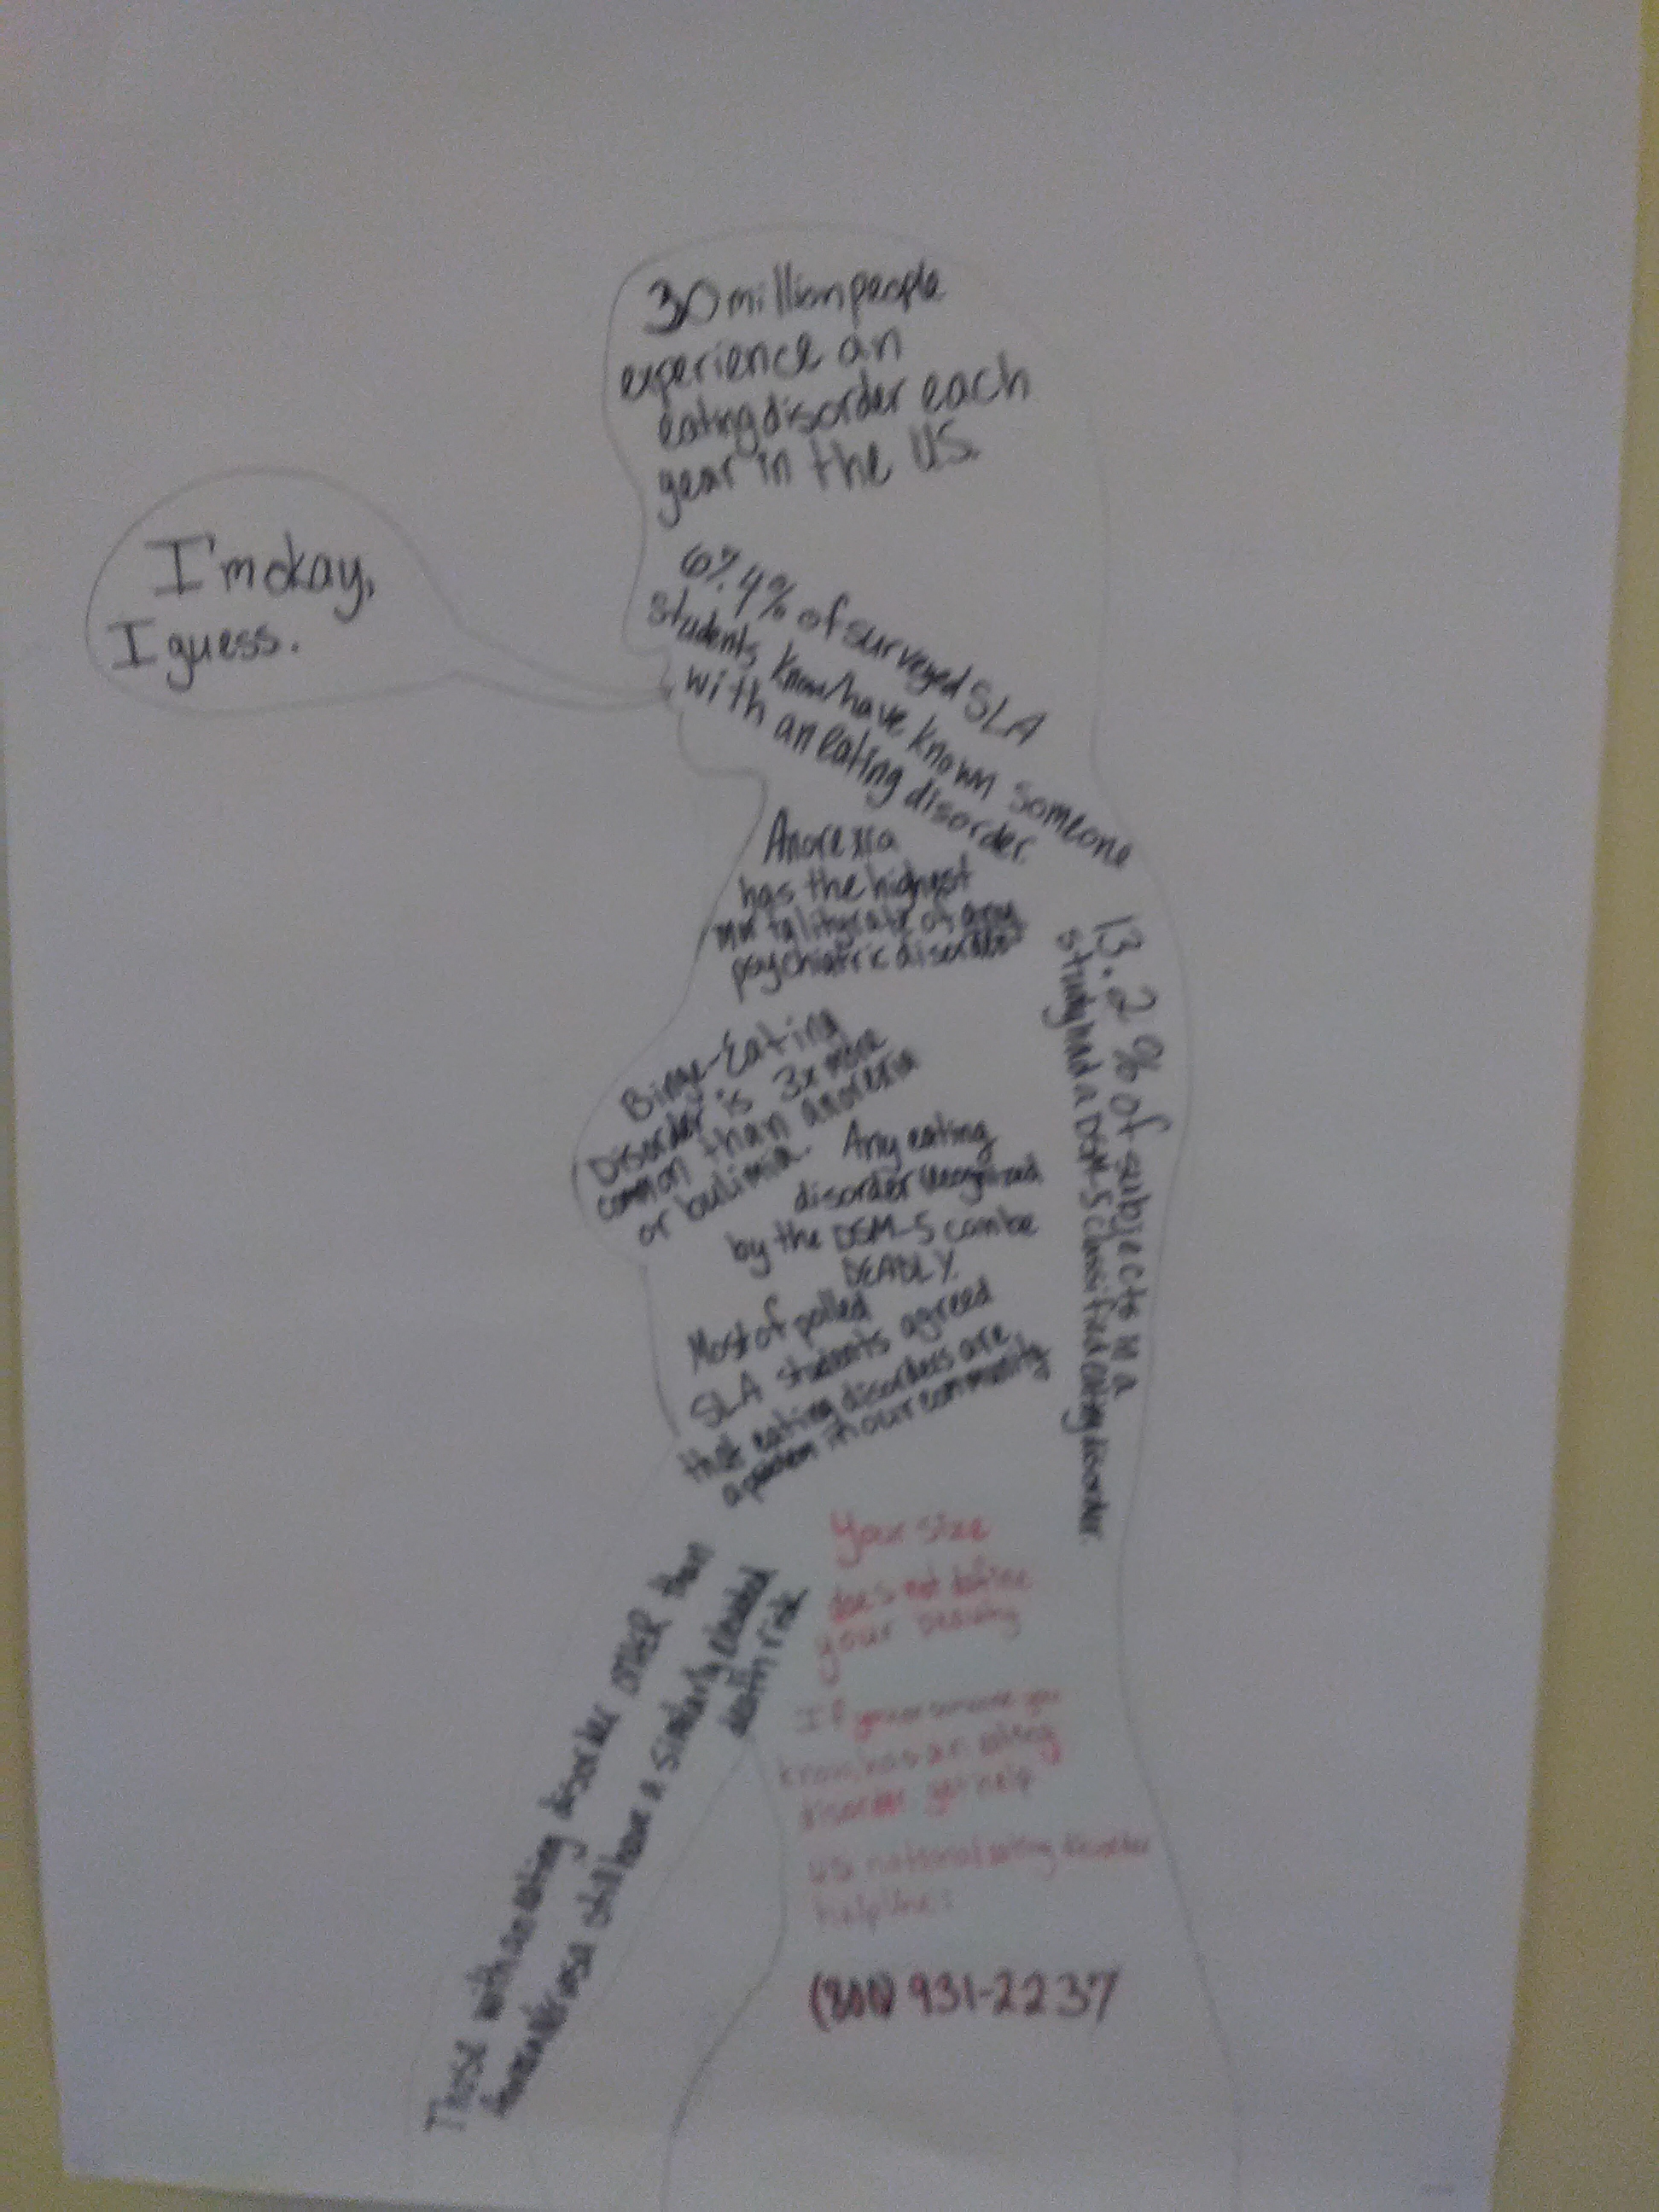 30 million people
experience an
eating disorder each
year in the US.
I'm okay,
I guess.
67.4% of surveyed SLA
students know/have known someone
with an eating disorder.
Anorexia
has the highest
mortality rate of any
psychiatric disorder
13.2% of subjects in a
study had a DSM-5 classified eating disorder.
Binge-Eating
Disorder is 3x more
common than anorexia
or bulimia.
Any eating
disorder recognized
by the DSM-5 can be
DEADLY.
Most of polled
SLA students agreed
that eating disorders are
a problem in our community
Those with an eating disorder OTHER than
still have a similarly elevated
death risk
Your size
does not define
your beauty
If you or someone you
know has an eating
disorder get help
US national eating disorder
helpline:
(800) 931-2237